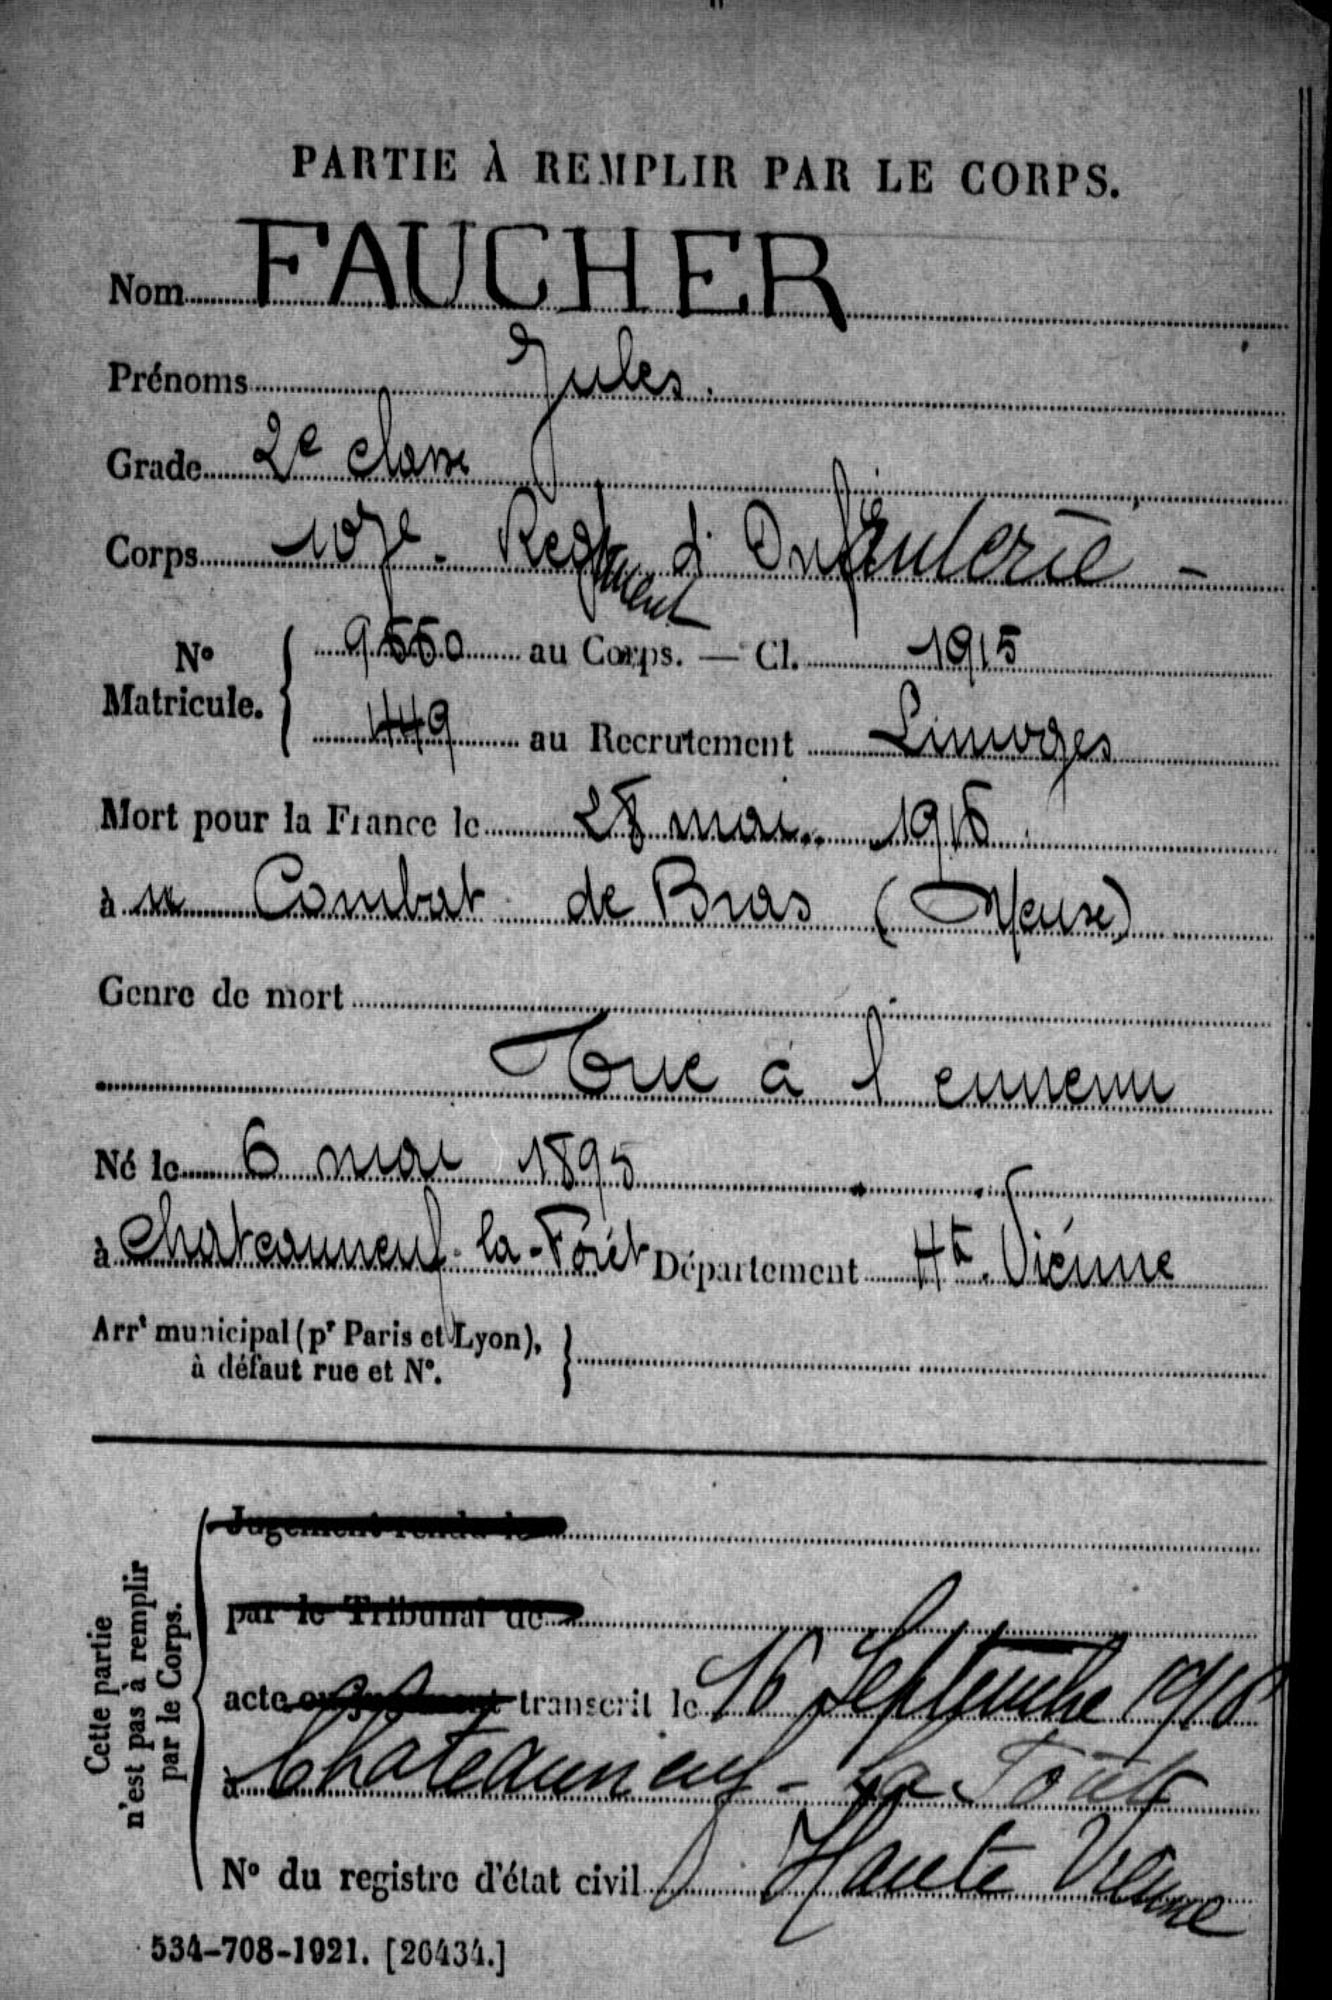 PARTIE À REMPLIR PAR LE CORPS.
Nom FAUCHER
Prénoms Jules.
Grade 2e classe
Corps 107e - Regiment d'Infanterie -
N° Matricule. { 9550 au Corps. — Cl. 1915
449 au Recrutement Limoges
Mort pour la France le 28 mai 1916
à u Combat de Bras (Meuse)
Genre de mort
Tué à l'ennemi
Né le 6 mai 1895
à Chateauneuf-la-Forêt Département Hte Vienne
Arrt municipal (pr Paris et Lyon), }
à défaut rue et N°.
Cette partie
n'est pas à remplir
par le Corps.
Jugement rendu le
par le Tribunal de
acte ou jugement transcrit le 16 Septembre 1916
à Chateauneuf-la Forêt
N° du registre d'état civil Haute Vienne
534-708-1921. [26434.]